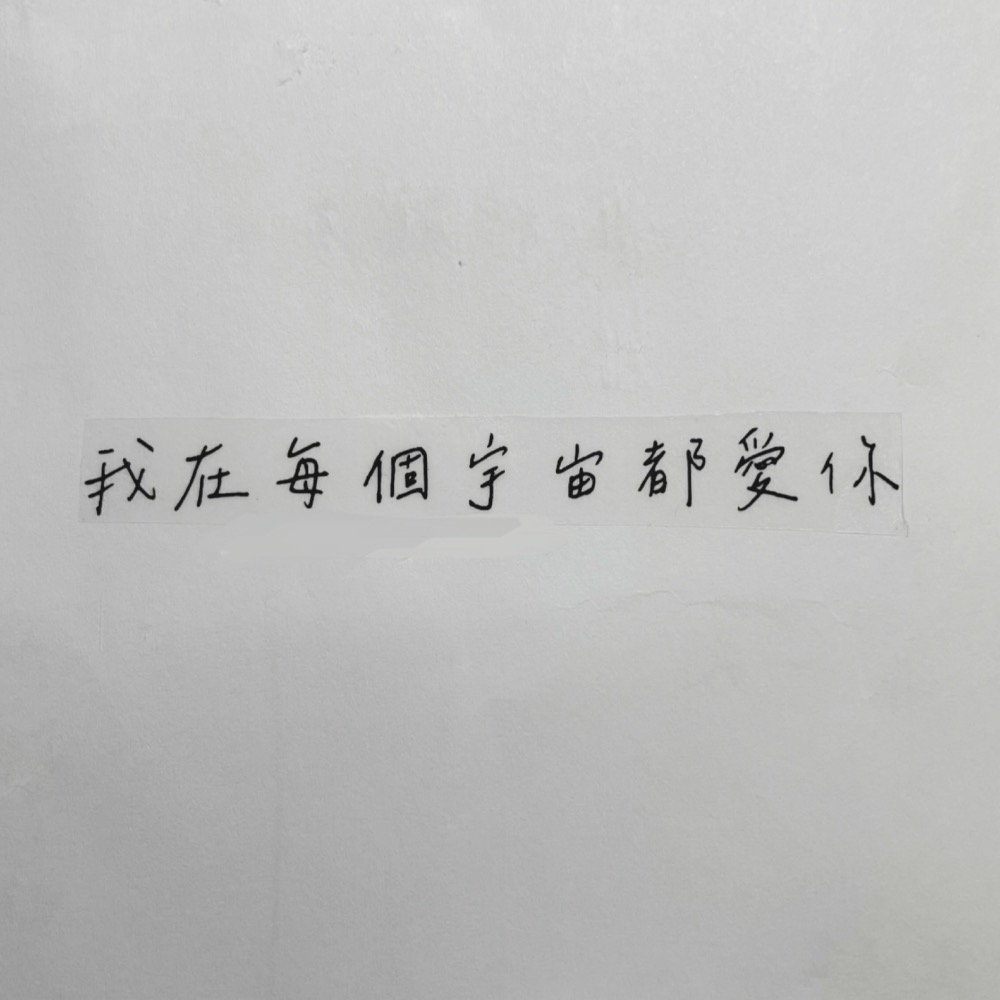 我在每個宇宙都愛你